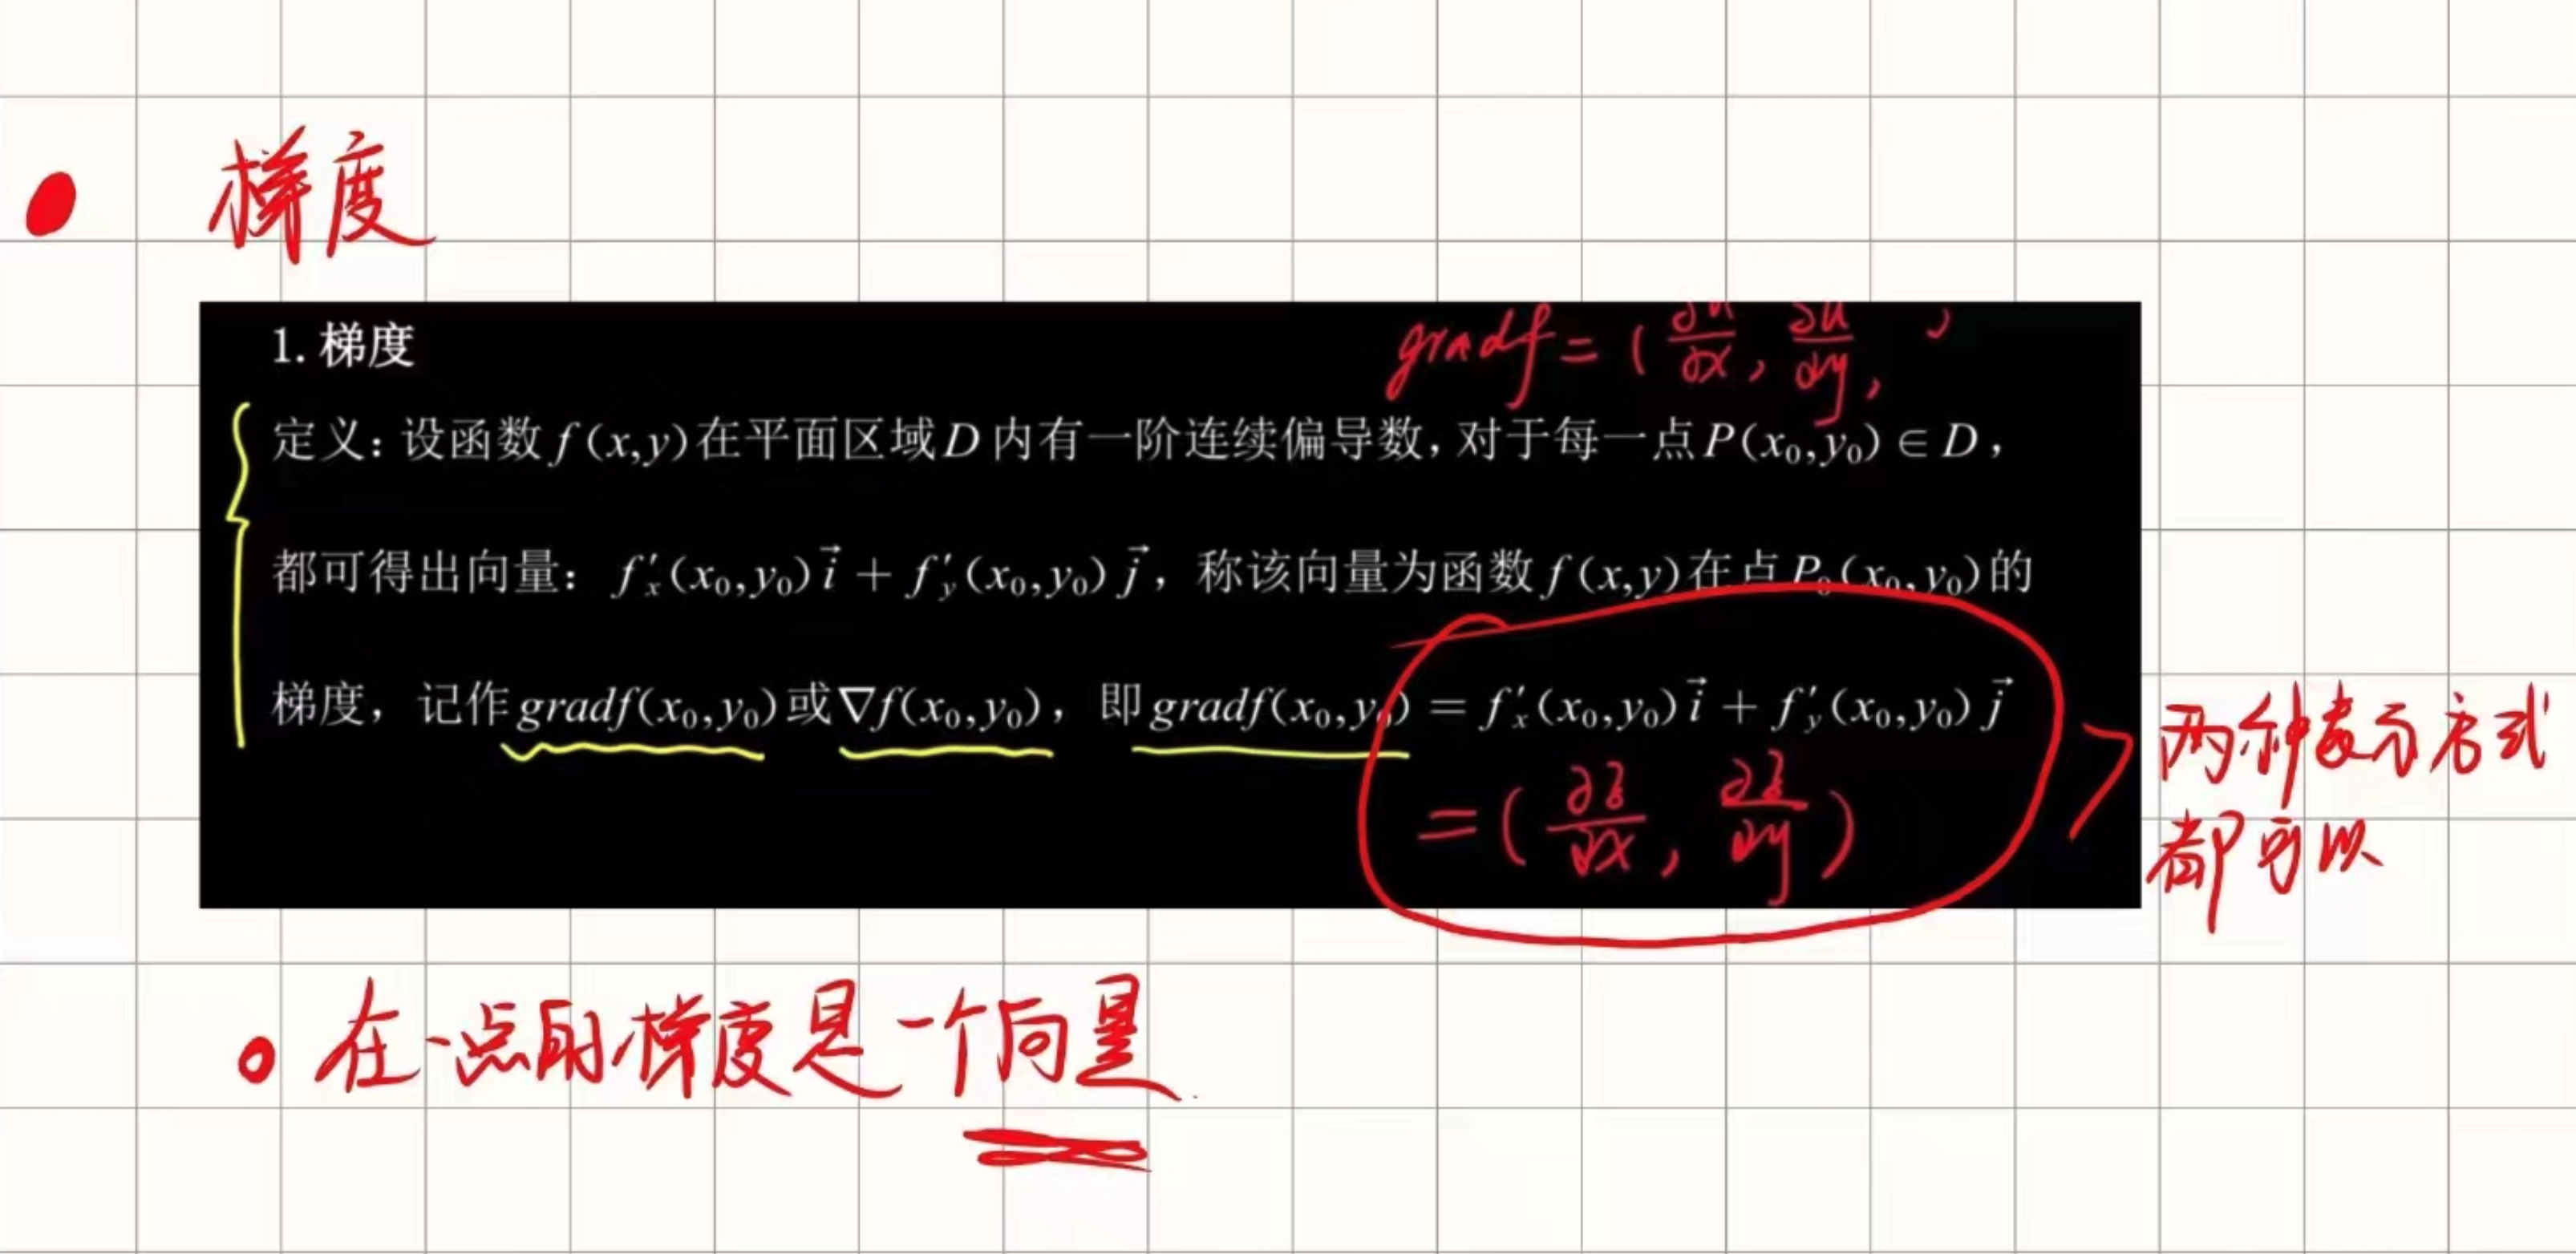 梯度
1. 梯度
gradf = (∂u/∂x, ∂u/∂y,
定义：设函数 f(x,y) 在平面区域 D 内有一阶连续偏导数，对于每一点 P(x₀,y₀) ∈ D，
都可得出向量：f′ₓ(x₀,y₀) i⃗ + f′ᵧ(x₀,y₀) j⃗，称该向量为函数 f(x,y) 在点 P₀(x₀,y₀) 的
梯度，记作 gradf(x₀,y₀) 或 ∇f(x₀,y₀)，即 gradf(x₀,y₀) = f′ₓ(x₀,y₀) i⃗ + f′ᵧ(x₀,y₀) j⃗
= (∂z/∂x, ∂z/∂y)
两种表示方式
都可以
在一点的梯度是一个向量